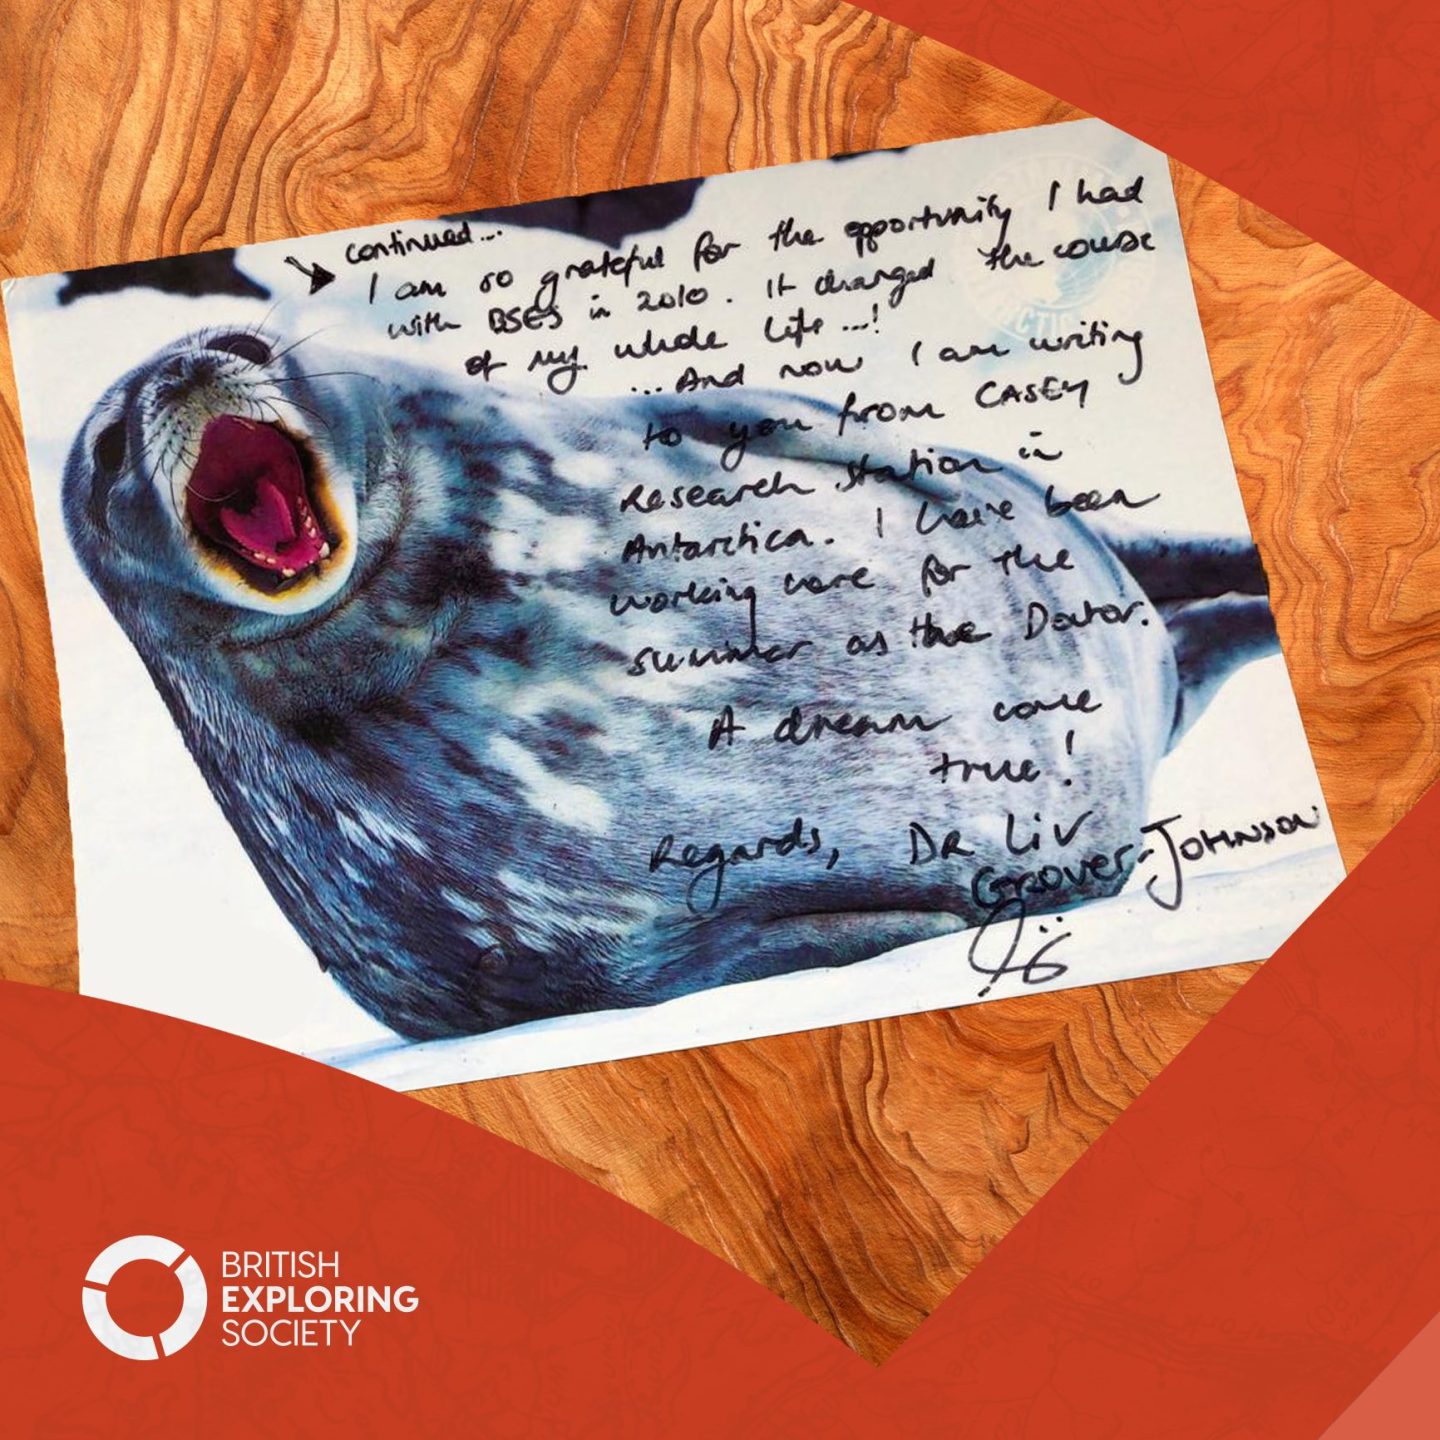 continued...
I am so grateful for the opportunity I had
with BSES in 2010. It changed the course
of my whole life...!
...And now I am writing
to you from CASEY
Research station in
Antarctica. I have been
working here for the
summer as the Doctor.
A dream come
true!
Regards, DR LIV
GROVER-JOHNSON
BRITISH
EXPLORING
SOCIETY